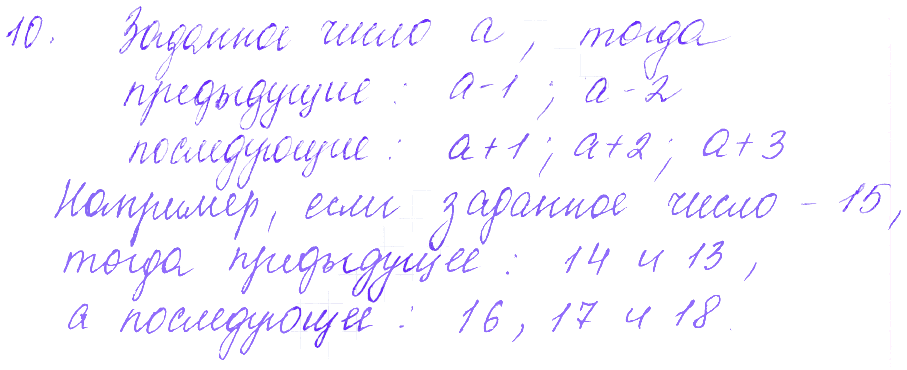 10. Заданное число a, тогда
предыдущие: a-1; a-2
последующие: a+1; a+2; a+3
Например, если заданное число - 15,
тогда предыдущее: 14 и 13,
а последующее: 16, 17 и 18.